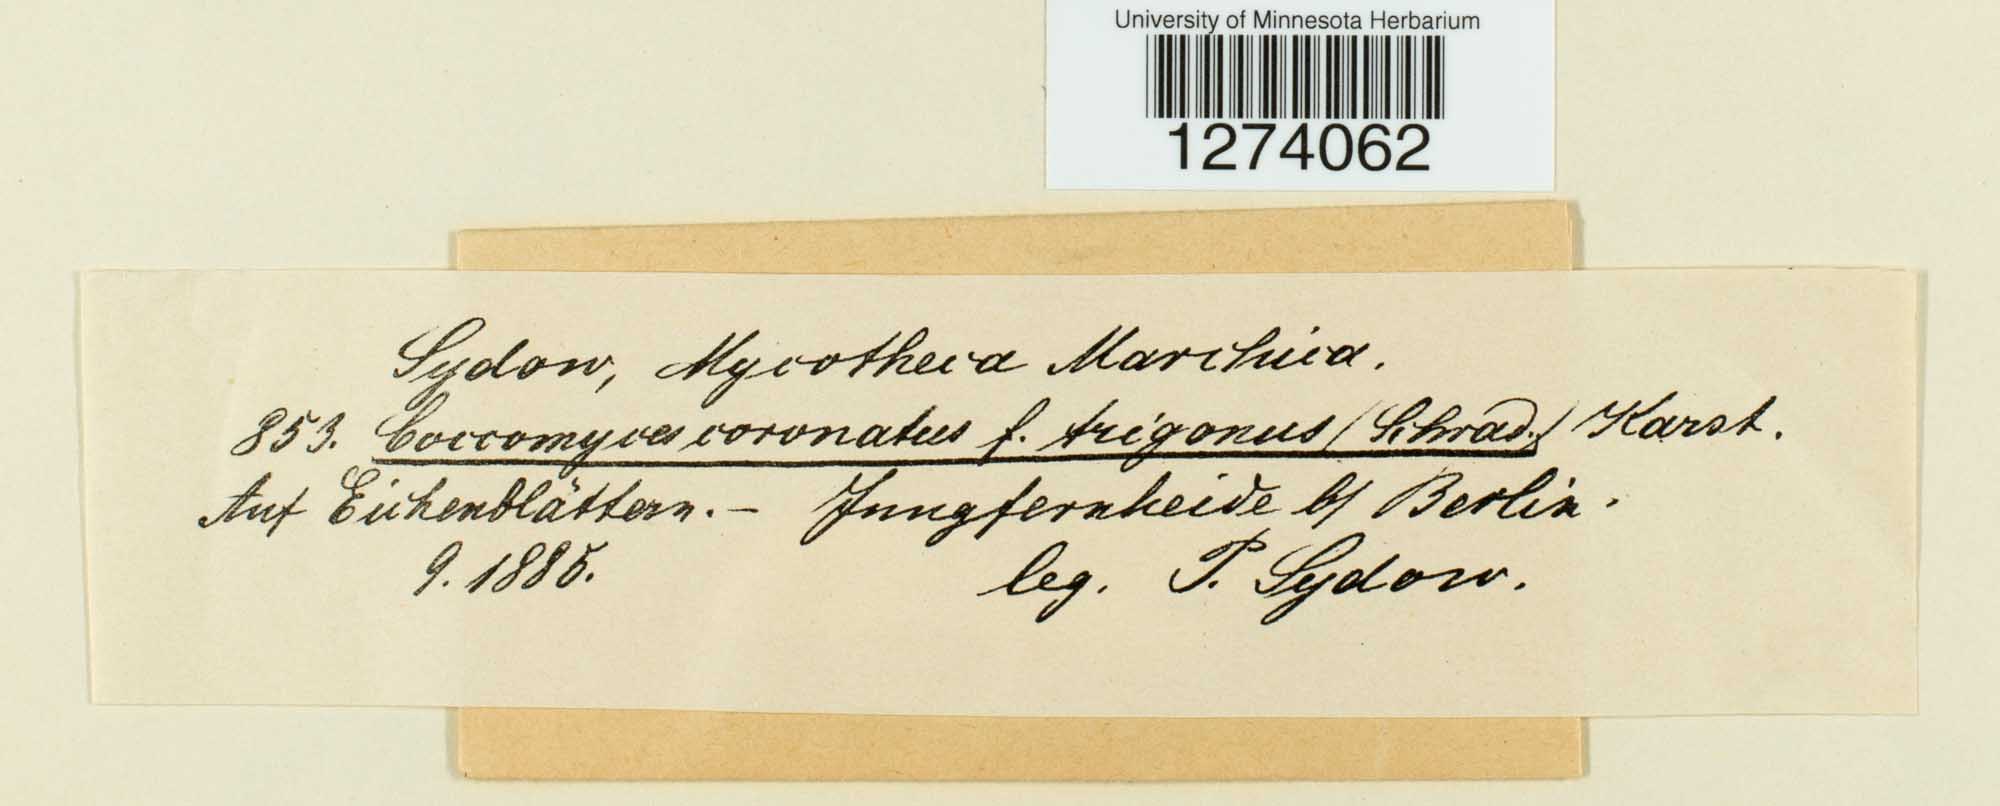 University of Minnesota Herbarium
1274062
Sydow, Mycotheca Marchica.
853. Coccomyces coronatus f. trigonus (Schrad.) Karst.
Auf Eichenblättern. – Jungfernheide b/ Berlin.
9. 1885. leg. P. Sydow.